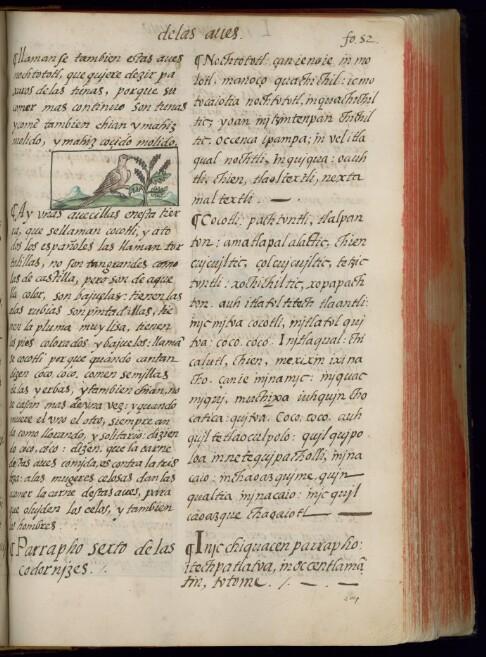 de las aues.
fo. 52.
¶ llamanse tambien estas aues
nochtototl, que quiere dezir pa
xaros de las tunas, porque su
comer mas continuo son tunas
y come tambien chian y mahiz
molido, y mahiz cocido molido.
¶ Ay vnas auecillas en esta tier
ra, que se llaman cocotli, y a to
dos los españoles las llaman tor
tolillas, no son tan grandes como
las de castilla, pero son de aque
lla color, son baxuelas: tienen las
alas rubias son pintadillas, tie
nen la pluma muy lisa, tienen
los pies colorados y baxuelos: llama
se cocotli porque quando cantan
dizen coco, coco, comen semillas
de las yerbas, y tambien chian, no
se casan mas de vna vez: y quando
muere el vno el otro, siempre an
da como llorando, y solitario: dizien
do coco, coco: dizen que la carne
destas aues comida, es contra la tris
teza: a las mugeres celosas dan las
a comer la carne destas aues, para
que oluiden los celos, y tambien
los hombres.
¶ Parrapho sexto de las
codornizes. /.
¶ Nochtototl: çan ienoie in mo
lotl. manoço quachichil: ic mo
tocaiotia nochtototl, in quachichil
tic, yoan in itzintenpan chichil
tic. occenca ipampa; in vel itla
qual nochtli, in quiqua: oauh
tli, chien, tlaoltextli, nexta
mal textli. —.—
¶ Cocotli: pachtontli, tlalpan
ton: amatlapal alactic, chien
cuicuiltic, colcuicuiltic, tetzic
tontli: xochichiltic, xopapach
ton. auh itlatol itech tlaantli:
injc mjtoa cocotli, in itlatol qui
toa: coco. coco. In itlaqual: chi
calutl, chien, mexixin ixina
cho. çan ie in jnamjc: in jquac
mjquj, muchipa iuhquin cho
catica: quitoa. Coco, coco. auh
quil tetlaoculpolo: quil quipo
loa in netequipacholli, in jna
caio: in chaoazque me, quin
qualtia in jnacaio: injc quil
caoazque chaoaiotl —
¶ Injc chiquacen parrapho:
itech patlatoa, in occentlamã
tin, totome. /. — . —